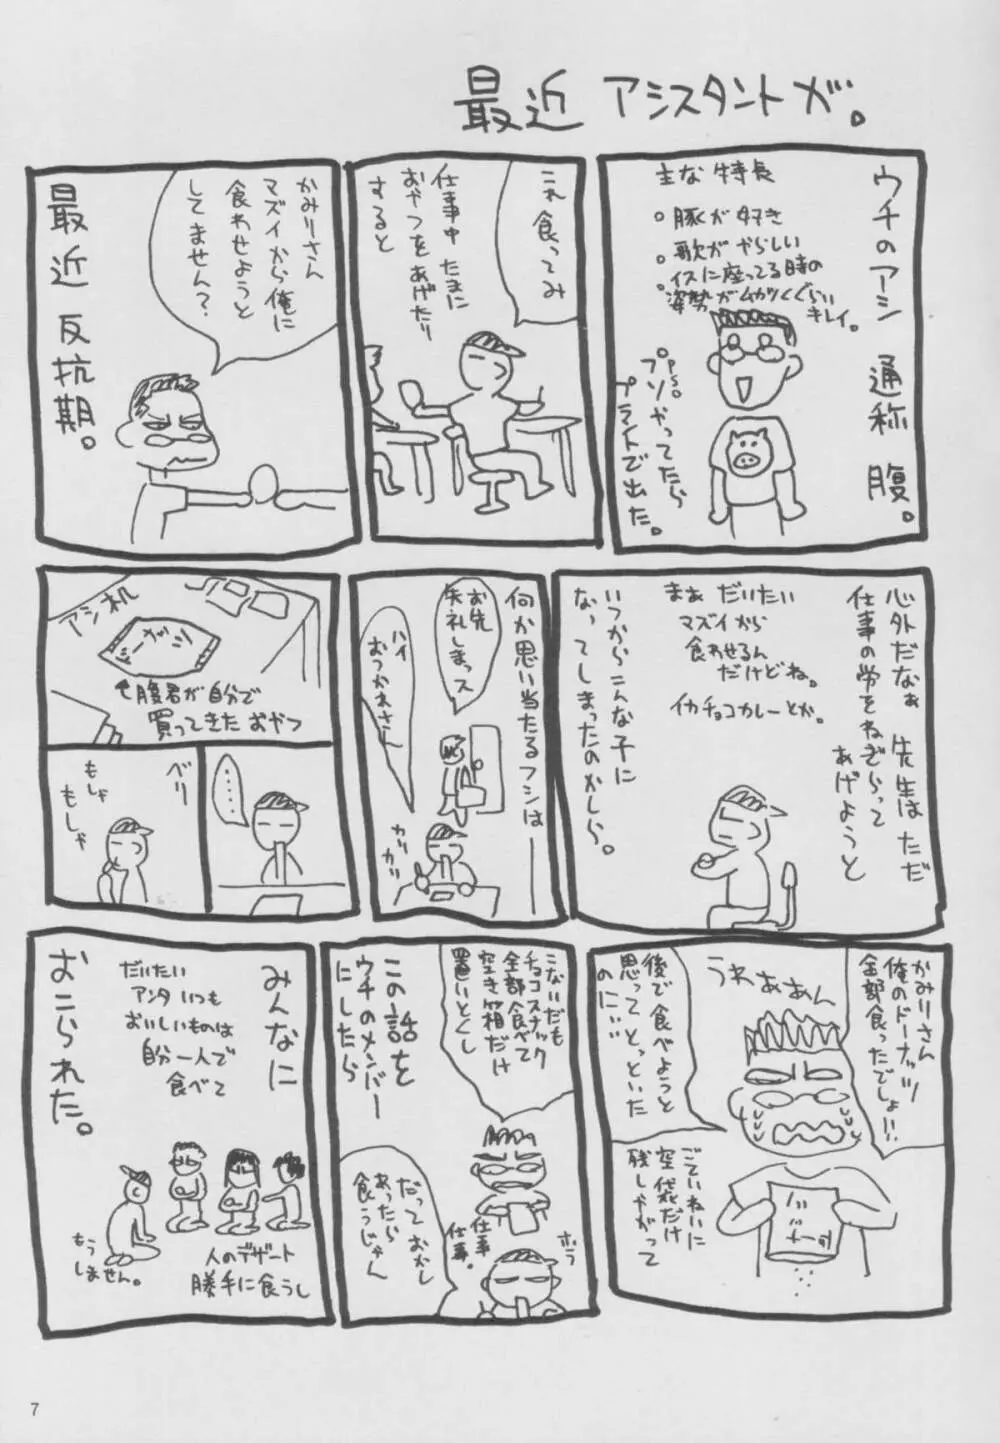 最近 アシスタントが。
ウチのアシ 通称 腹。
主な特長
。豚が好き
。歌がやらしい
。イスに座ってる時の
姿勢がムカツくぐらい
キレイ。
P.S.
プソやってたら
プラントで出た。
これ 食ってみ
仕事中 たまに
おやつをあげたり
すると
かみりさん
マズイから俺に
食わせようと
してません?
最近 反抗期。
心外だなぁ 先生はただ
仕事の労をねぎらって
あげようと
まぁ だいたい
マズイから
食わせるん
だけどね。
イカチョコカレーとか。
いつからこんな子に
なってしまったのかしら。
何か思い当たるフシは
お先
失礼しまっス
ハイ
おつかれさん
カリ
カリ
アシ机
腹君が自分で
買ってきた おやつ
‥‥‥
ベリ
もしゃ
もしゃ
かみりさん
俺のドーナッツ
全部食ったでしょ!!
うわぁあん
後で食べようと
思ってとっといた
のに‥‥
ごていねいに
空袋だけ
残しやがって
こないだも
チョコスナック
全部食べて
空き箱だけ
置いとくし
だっておかし
あったら
食うじゃん
ホラ
仕事
仕事。
この話を
ウチのメンバー
にしたら
みんなに
だいたい
アンタ いつも
おいしいものは
自分一人で
食べて
人のデザート
勝手に食うし
もう
しません。
おこられた。
7